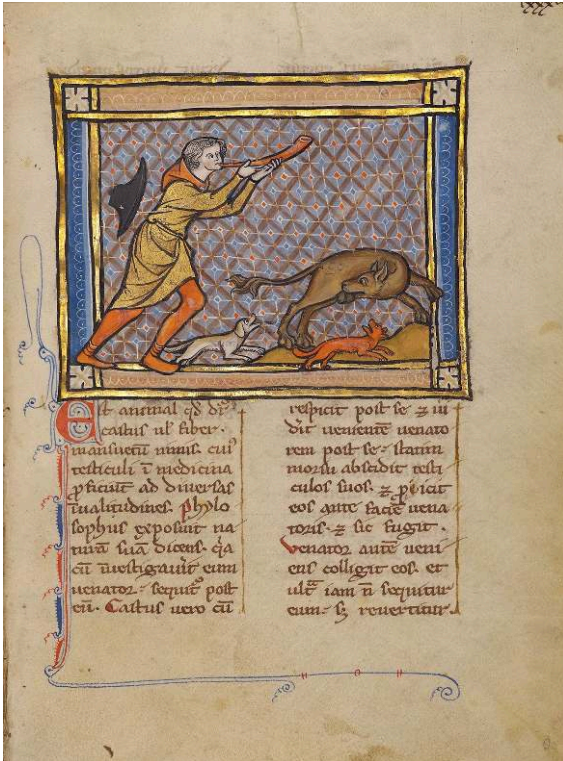 Est animal qd dr̃
castus ul̃ fiber.
mansuetũ nimis. cuiꝰ
testiculi ĩ medicina
ꝓficiũt ad diversas
ĩvalitudines. phylo
sophus exposuit na
turã suã dicens. q̃a
cũ ĩvestigaṽit eum
venator. sequitꝰ post
eũ. Castus vero cũ
respicit post se ⁊ vi
dit venientẽ venato
rem post se. statim
morsu abscidit testi
culos suos. ⁊ ꝓicit
eos ante faciẽ vena
toris. ⁊ sic fugit.
Venator autẽ veni
ens colligit eos. et
ult̃ iam ñ sequitur
eum. sꝫ revertitur.